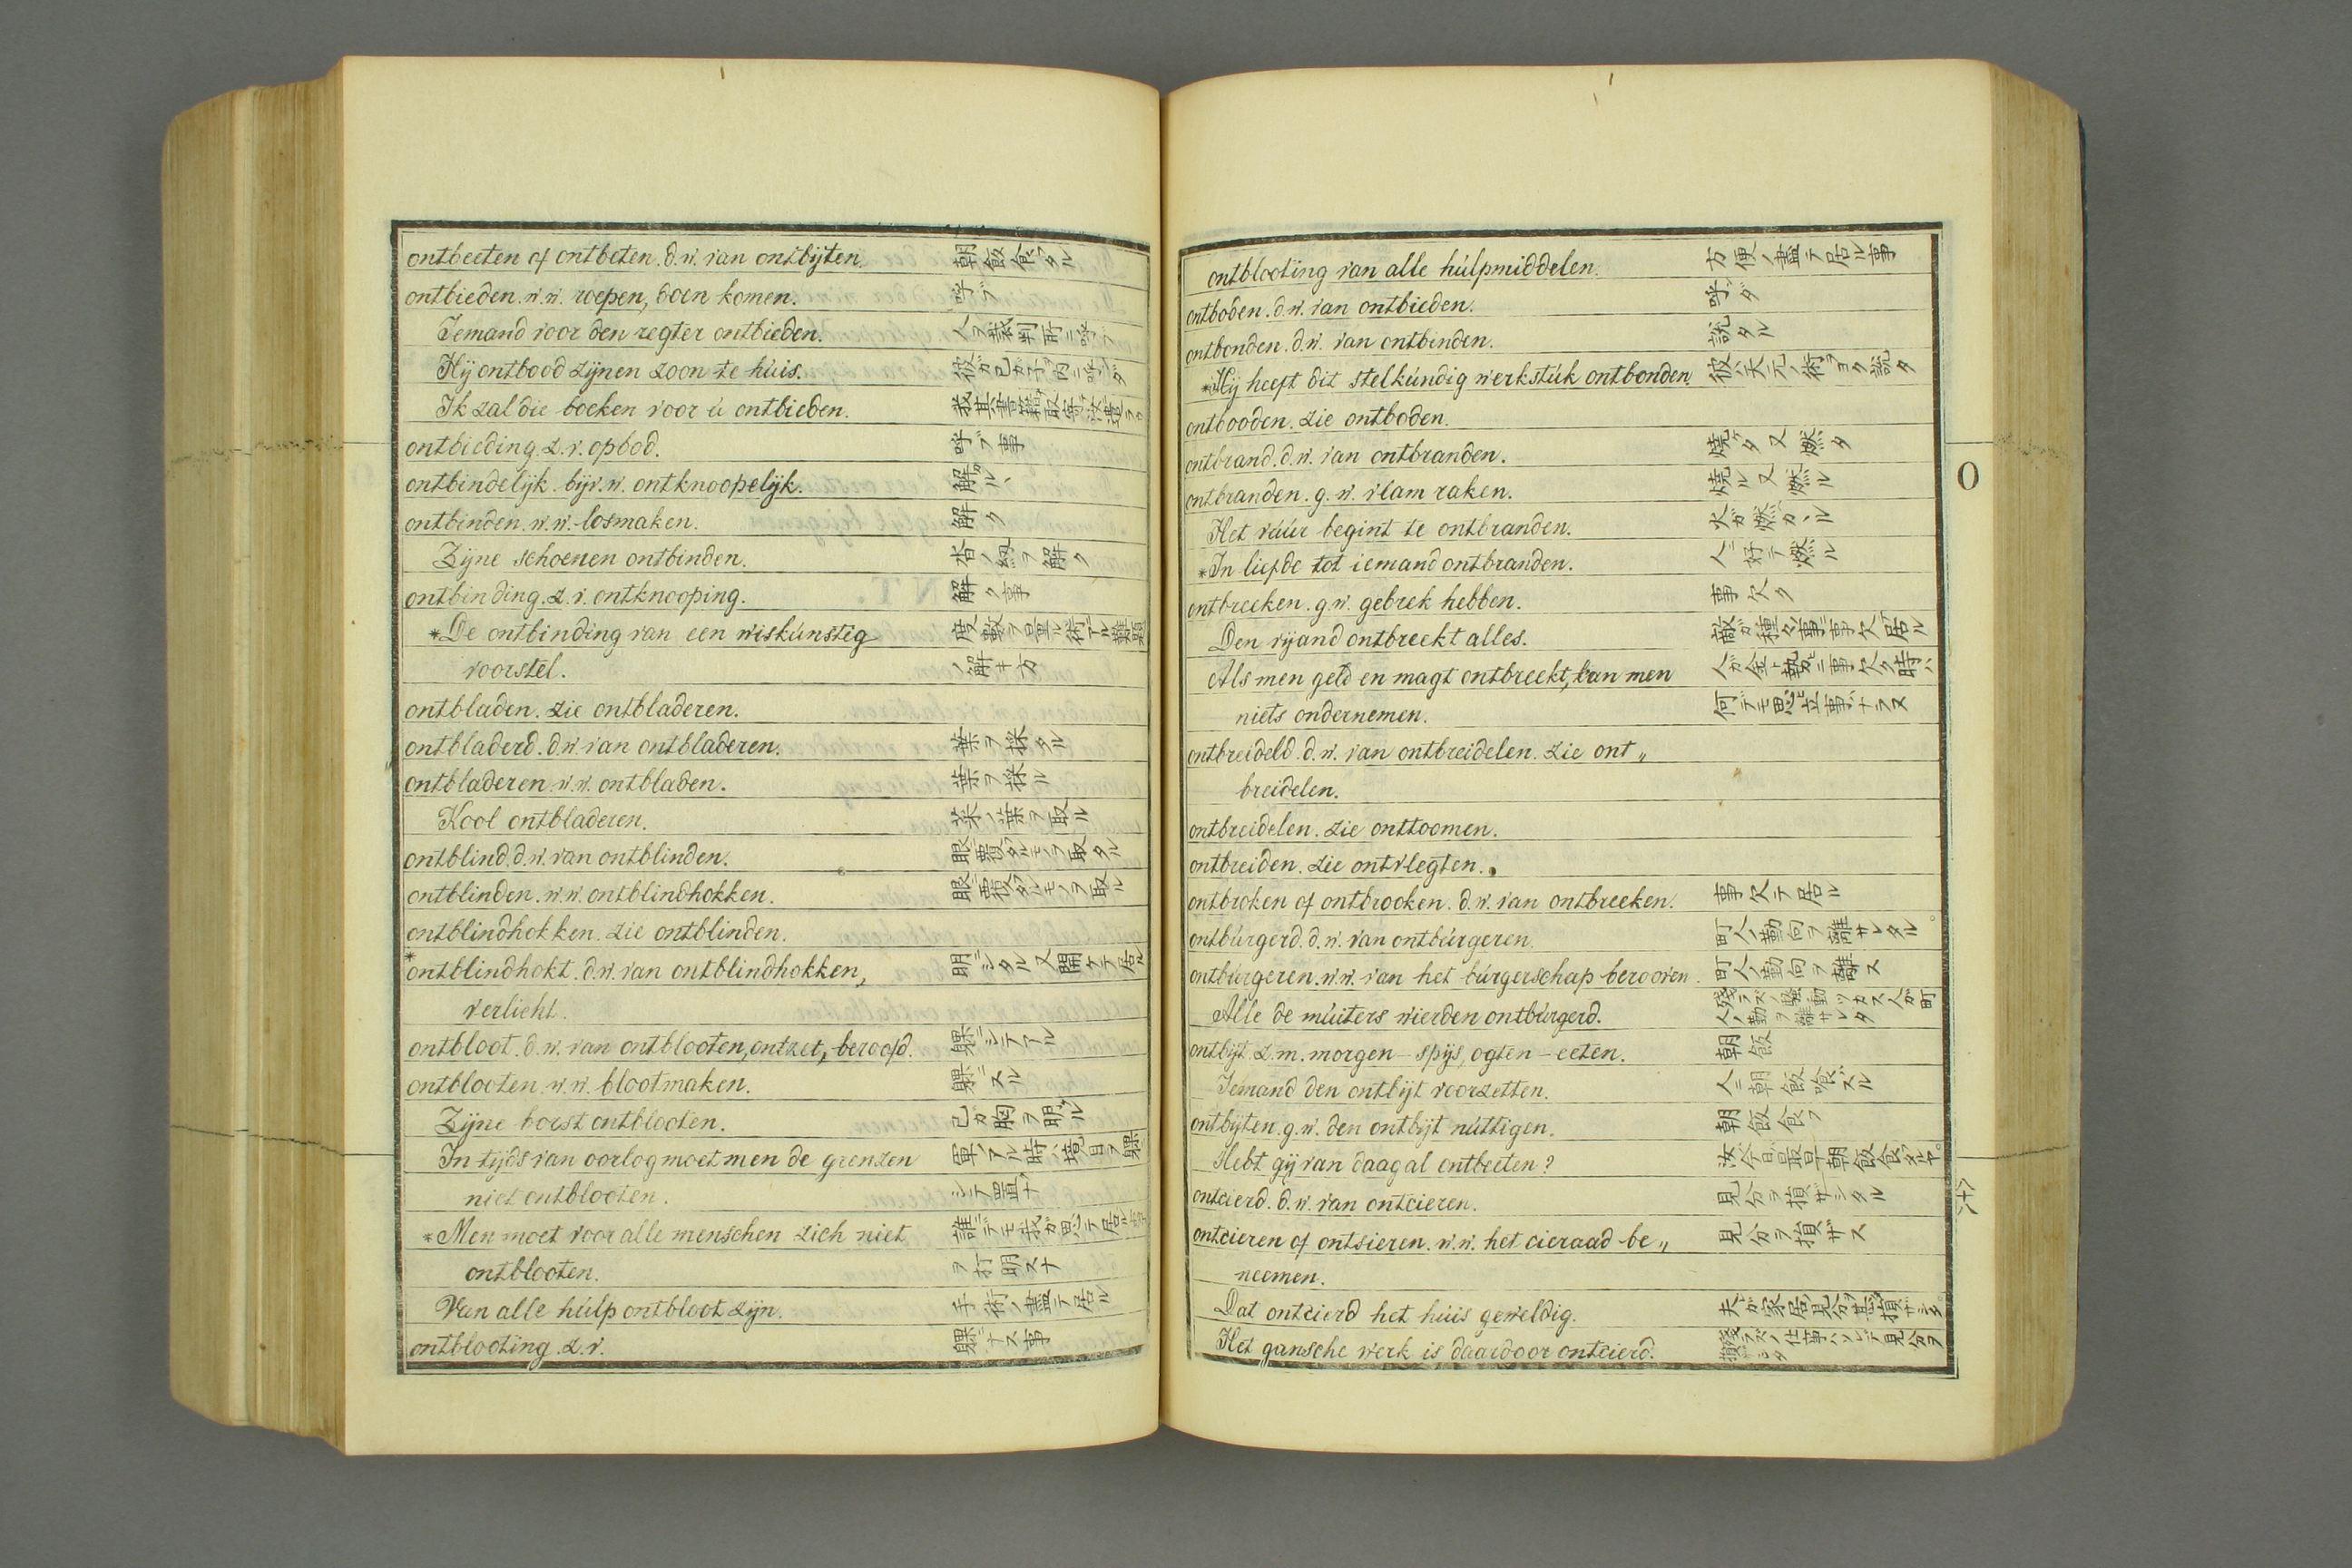 ontbeeten of ontbeten. d. w. van ontbijten. 朝飯食フタル
ontbieden. w. w. roepen, doen komen. 呼ブ
Iemand voor den regter ontbieden. 人ヲ裁判所ニ呼ブ
Hij ontbood zijnen zoon te húis. 彼ガ己ガ子ヲ内ニ呼ンダ
Ik zal die boeken voor ú ontbieden.
ontbieding. z. v. opbod. 呼ブ事
ontbindelijk. bijv. w. ontknoopelijk.
ontbinden. w. w. losmaken. 解ク
Zijne schoenen ontbinden. 沓ノ紐ヲ解ク
ontbinding. z. v. ontknooping. 解ク事
*De ontbinding van een wiskúnstig 度數ヲ量ル術
voorstel. ノ解キ方
ontbladen. zie ontbladeren.
ontbladerd. d. w. van ontbladeren. 葉ヲ採タル
ontbladeren. w. w. ontbladen. 葉ヲ採ル
Kool ontbladeren. 菜ノ葉ヲ取ル
ontblind. d. w. van ontblinden. 眼ニ覆フタルモノヲ取タル
ontblinden. w. w. ontblindhokken. 眼ニ覆フタルモノヲ取ル
ontblindhokken. zie ontblinden.
*ontblindhokt. d. w. van ontblindhokken,
verlicht.
ontbloot. d. w. van ontblooten, ontzet, beroofd. 裸ニシテアル
ontblooten. w. w. blootmaken. 裸ニスル
Zijne borst ontblooten. 己ガ胸ヲ明ケル
In tijds van oorlog moet men de grenzen 軍ノアル時ハ境目ヲ裸ニ
niet ontblooten. シテ置ナ
*Men moet voor alle menschen zich niet 誰ニデモ我ガ思テ居ル事
ontblooten. ヲ打明スナ
Van alle húlp ontbloot zijn. 手術ノ盡テ居ル
ontblooting. z. v. 裸ニナス事
ontblooting van alle húlpmiddelen. 方便ノ盡テ居ル事
ontboden. d. w. van ontbieden. 呼ンダ
ontbonden. d. w. van ontbinden. 説タル
*Hij heeft dit stelkúndig werkstúk ontbonden. 彼ハ天元ノ術ヲヨク説タ
ontbooden. zie ontboden.
ontbrand. d. w. van ontbranden. 燒ケタ又燃タ
ontbranden. g. w. vlam raken. 燒ル又燃ル
Het vúúr begint te ontbranden. 火ガ燃カヽル
*In liefde tot iemand ontbranden. 人ニ好テ燃ル
ontbreeken. g. w. gebrek hebben. 事欠ク
Den vijand ontbreekt alles. 敵ガ種々ノ事ニ事欠テ居ル
Als men geld en magt ontbreekt, kan men 人ガ金ト勢ヒニ事欠ク時ハ
niets ondernemen. 何デモ思ヒ立事ハナラヌ
ontbreideld. d. w. van ontbreidelen. zie ont„
breidelen.
ontbreidelen. zie onttoomen.
ontbreiden. zie ontvlegten.
ontbroken of ontbrooken. d. w. van ontbreeken. 事欠テ居ル
ontbúrgerd. d. w. van ontbúrgeren. 町人ノ勤向ヲ離サレタル
ontbúrgeren. w. w. van het búrgerschap berooven. 町人ノ勤向ヲ離ス
Alle de múiters wierden ontbúrgerd. 殘ラズノ騷動ツカス人ガ町人ノ勤ヲ離サレタ
ontbijt. z. m. morgen-spijs, ogten-eeten. 朝飯
Iemand den ontbijt voorzetten. 人ニ朝飯喰ハスル
ontbijten. g. w. den ontbijt núttigen. 朝飯食フ
Hebt gij van daag al ontbeeten?
ontcierd. d. w. van ontcieren. 見分ヲ損ザシタル
ontcieren of ontsieren. w. w. het cieraad be„ 見分ヲ損ザス
neemen.
Dat ontcierd het húis geweldig. 夫ガ家居ノ見分ヲ甚ダ損ザシタ。
Het gansche werk is daardoor ontcierd. 殘ラズノ仕事ハソレデ見分ヲ損ザシタ
O